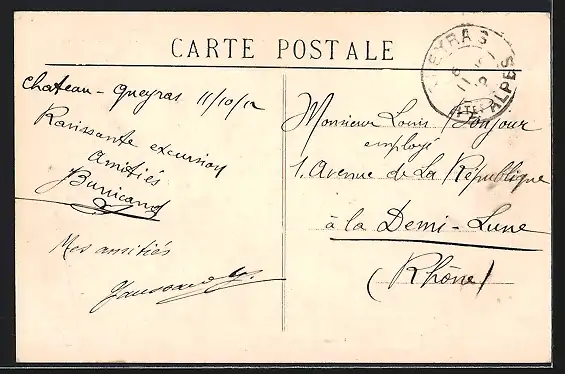 CARTE POSTALE
Chateau-Queyras 11/10/12
Ravissante excursion
Amitiés
Mes amitiés
QUEYRAS
Htes ALPES
Monsieur Louis Bonjour
employé
1. Avenue de la République
à la Demi-Lune
(Rhône)